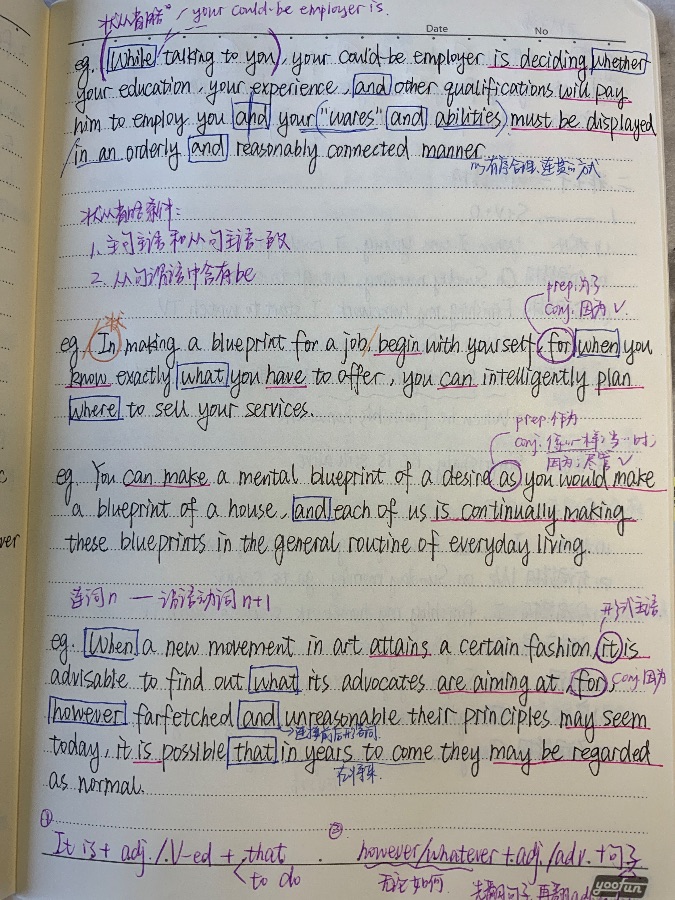 状从省略。 your could-be employer is.
Date No
eg. (While talking to you), your could-be employer is deciding whether
your education, your experience, and other qualifications will pay
him to employ you and your ("wares" and abilities) must be displayed
in an orderly and reasonably connected manner
以有序合理、连贯的方式
状从省略条件:
1. 主句主语和从句主语一致
2. 从句谓语中含有be
prep.为了
conj. 因为 √.
状
eg. In making a blueprint for a job/ begin with yourself, for when you
know exactly what you have to offer, you can intelligently plan
where to sell your services.
prep.作为
conj. 像…一样; 当…时;
因为; 尽管 √
eg. You can make a mental blueprint of a desire as you would make
a blueprint of a house, and each of us is continually making
these blueprints in the general routine of everyday living.
连词n — 谓语动词n+1
形式主语
eg. When a new movement in art attains a certain fashion, it is
advisable to find out what its advocates are aiming at, for,
conj 因为
however farfetched and unreasonable their principles may seem
→连接前后形容词
today, it is possible that in years to come they may be regarded
在将来
as normal.
① ②
It is + adj./.V-ed + that however/whatever + adj./adv. + 句子
to do 无论如何. 先翻句子, 再翻
yoofun
ver
c